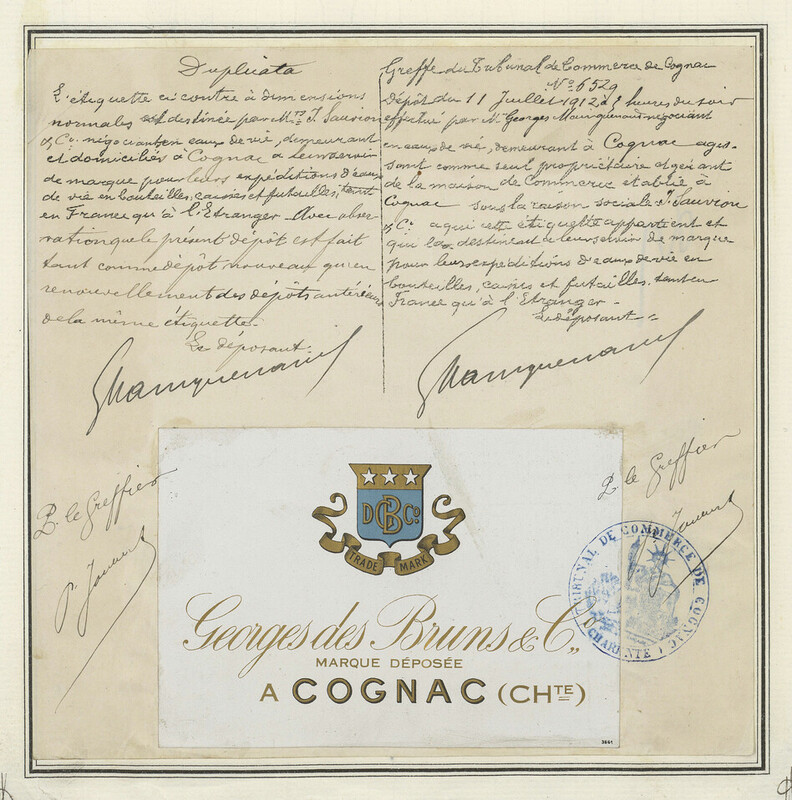 Duplicata
L'étiquette ci contre à dimensions
normales est destinée par MM. J. Sauvion
& Co. négociants en eaux de vie, demeurant
et domiciliés à Cognac à leur servir
de marque pour leurs expéditions d'eaux
de vie en bouteilles, caisses et futailles, tant
en France qu'à l'Etranger. Avec obser
vation que le présent dépôt est fait
tant comme dépôt nouveau qu'en
renouvellement des dépôts antérieurs
de la même étiquette.
Le déposant.
Greffe du Tribunal de Commerce de Cognac
No 6529
Dépôt du 11 Juillet 1912 à heures du soir
effectué par Mr Georges négociant
en eaux de vie, demeurant à Cognac agis-
sant comme seul propriétaire et gérant
de la maison de Commerce établie à
Cognac sous la raison sociale J. Sauvion
& Co. à qui cette étiquette appartient et
qui la destine à leur servir de marque
pour leurs expéditions d'eaux de vie en
bouteilles, caisses et futailles, tant en
France qu'à l'Etranger.
Le déposant
P. le Greffier
P. le Greffier
DBCo
TRADE MARK
Georges des Bruns & Co.,
MARQUE DÉPOSÉE
A COGNAC (CHTE)
3661
TRIBUNAL DE COMMERCE DE COGNAC
(CHARENTE)